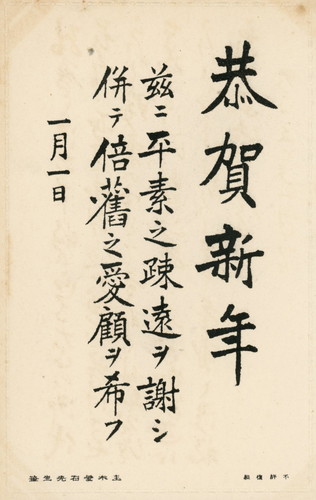 恭賀新年
茲ニ平素之疎遠ヲ謝シ
併テ倍舊之愛顧ヲ希フ
一月一日
不許複製
玉木愛石先生筆